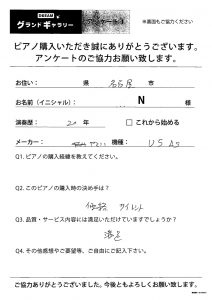 グランドギャラリー
※裏面もご協力ください
ピアノ購入いただき誠にありがとうございます。
アンケートのご協力お願い致します。
お住い： 県 名古屋 市
お名前（イニシャル）： N 様
演奏歴： 20 年 □ これから始める
メーカー： 機種： US
Q1. ピアノの購入経緯を教えてください。
Q2. このピアノの購入時の決め手は？
価格
Q3. 品質・サービス内容には満足いただけていますでしょうか？
満足
Q4. その他感想やご要望等、ご自由にご記入下さい。
ご協力ありがとうございました。今後ともよろしくお願い致します。